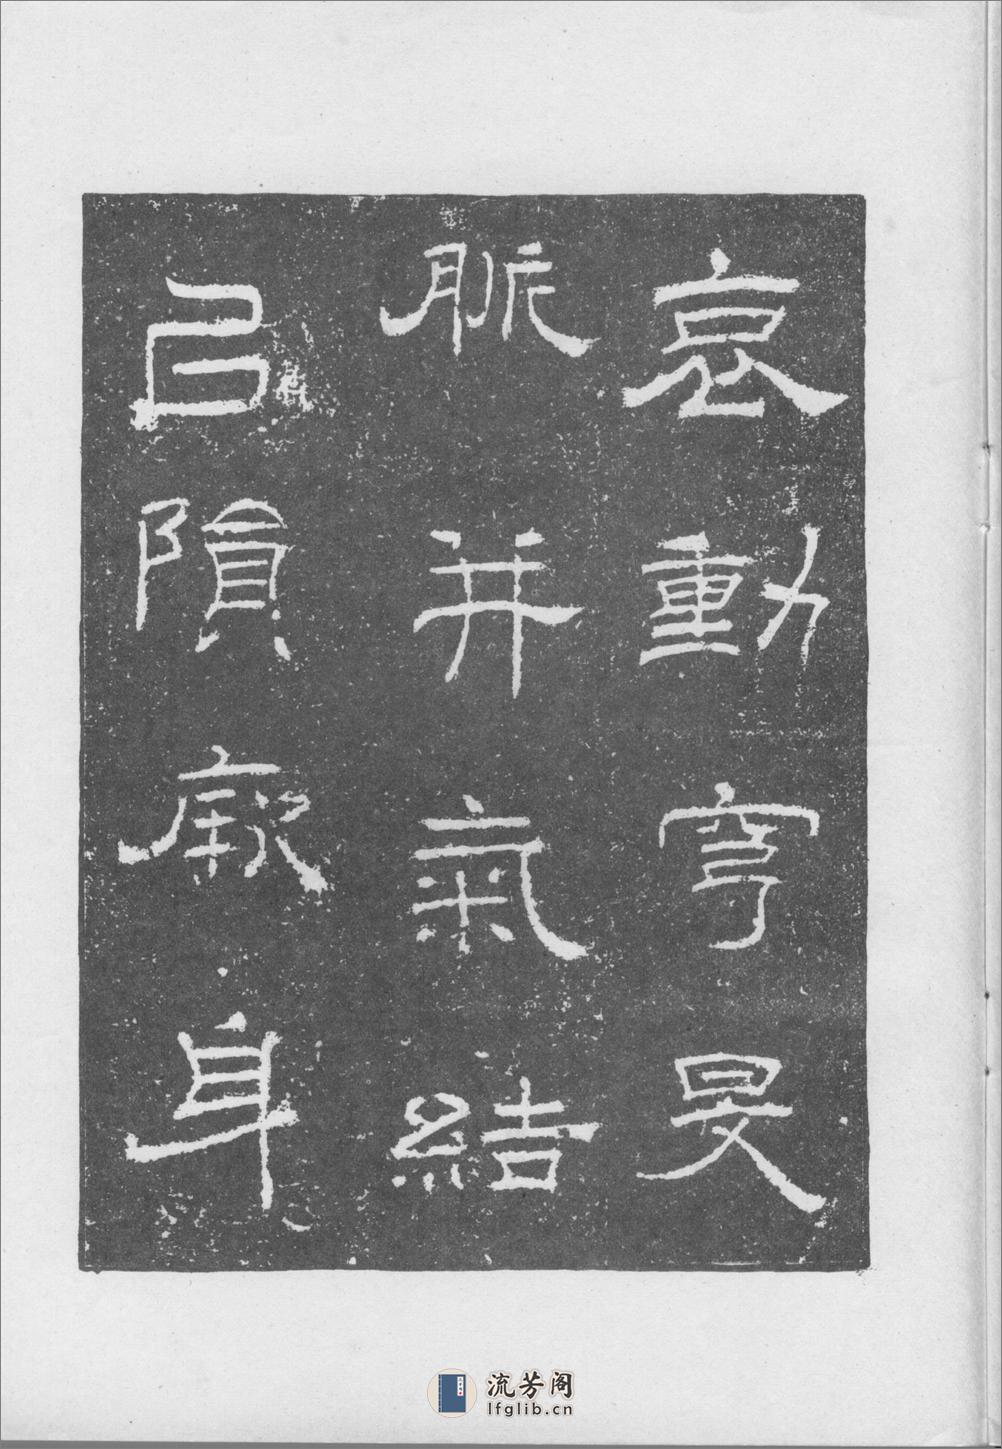 哀動穹旻
脈并氣結
以隕厥身
流芳阁
lfglib.cn